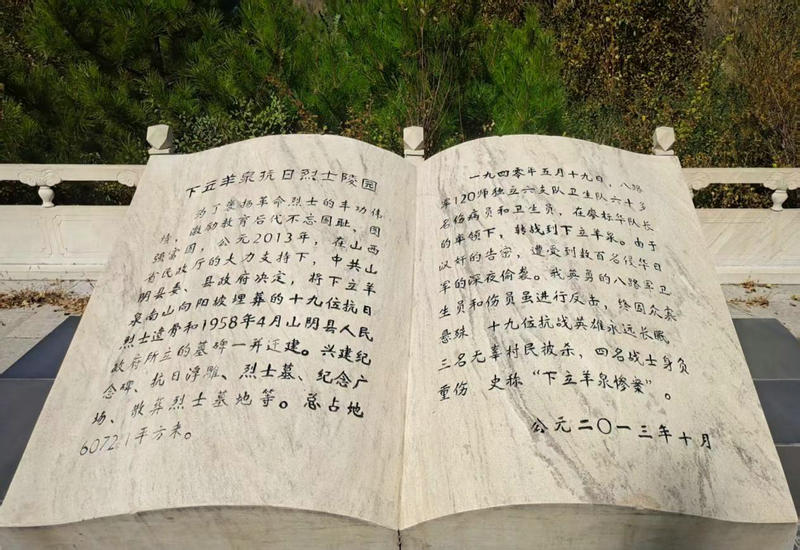 下立羊泉抗日烈士陵园
为了褒扬革命烈士的丰功伟
绩，激励教育后代不忘国耻，图
强富国，公元2013年，在山西
省民政厅的大力支持下，中共山
阴县委、县政府决定，将下立羊
泉南山向阳坡埋葬的十九位抗日
烈士遗骨和1958年4月山阴县人民
政府所立的墓碑一并迁建。兴建纪
念碑、抗日浮雕、烈士墓、纪念广
场、散葬烈士墓地等。总占地
6072.1平方米。
一九四零年五月十九日，八路
军120师独立六支队卫生队六十多
名伤病员和卫生员，在廖标华队长
的率领下，转战到下立羊泉。由于
汉奸的告密，遭受到数百名侵华日
军的深夜偷袭。我英勇的八路军卫
生员和伤员虽进行反击，终因众寡
悬殊 十九位抗战英雄永远长眠
三名无辜村民被杀，四名战士身负
重伤 史称“下立羊泉惨案”。
公元二〇一三年十月